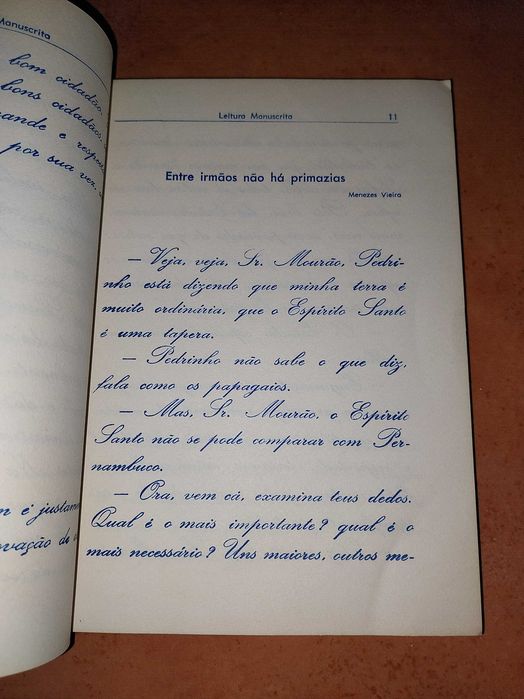 Manuscrita
bom cidadão.
bons cidadãos.
ande e respei
por sua vez,
é justam
ovação de
Leitura Manuscrita 11
Entre irmãos não há primazias
Menezes Vieira
— Veja, veja, Sr. Mourão, Pedri-
nho está dizendo que minha terra é
muito ordinária, que o Espírito Santo
é uma tapera.
— Pedrinho não sabe o que diz,
fala como os papagaios.
— Mas, Sr. Mourão, o Espírito
Santo não se pode comparar com Per-
nambuco.
— Ora, vem cá, examina teus dedos.
Qual é o mais importante? qual é o
mais necessário? Uns maiores, outros me-